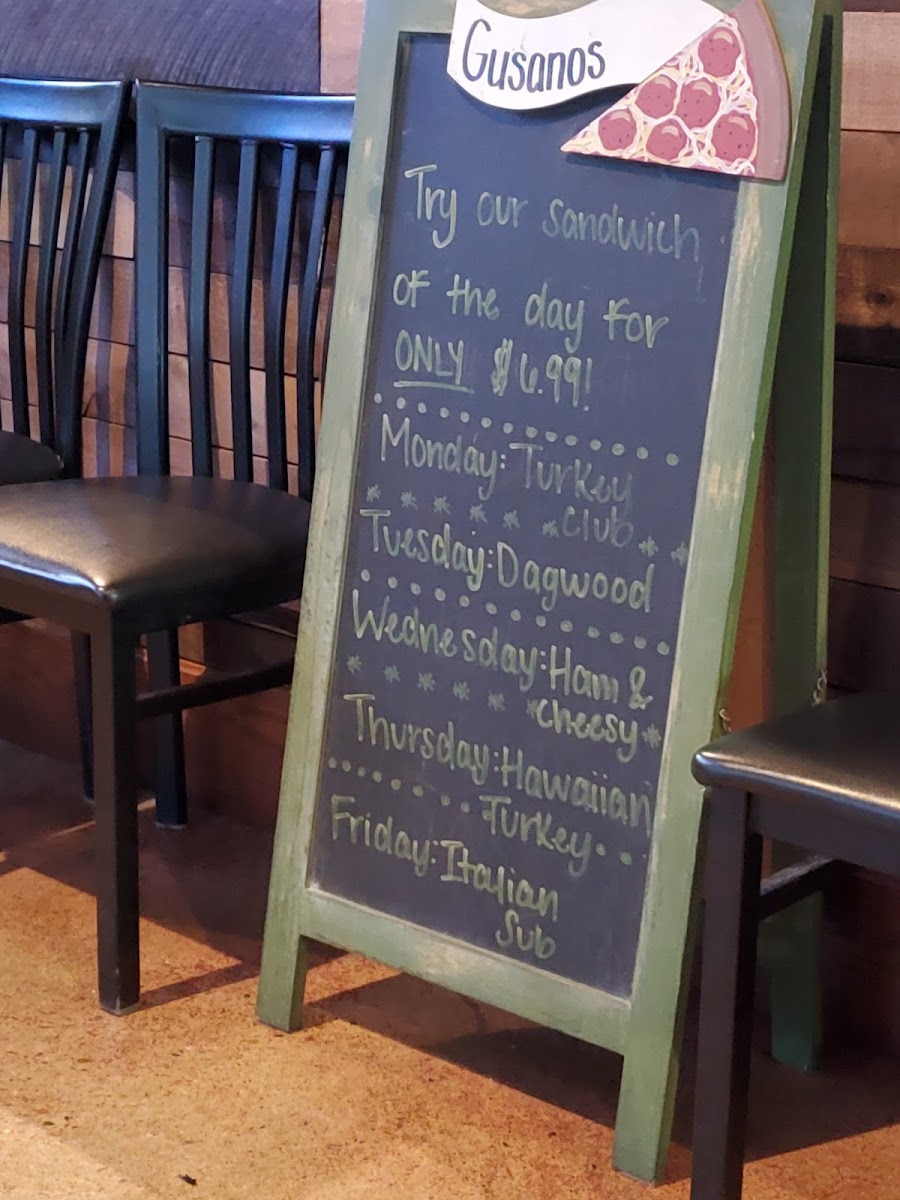 Gusanos
Try our sandwich
of the day for
ONLY $6.99!
Monday: Turkey
Club
Tuesday: Dagwood
Wednesday: Ham &
Cheesy
Thursday: Hawaiian
Turkey
Friday: Italian
Sub